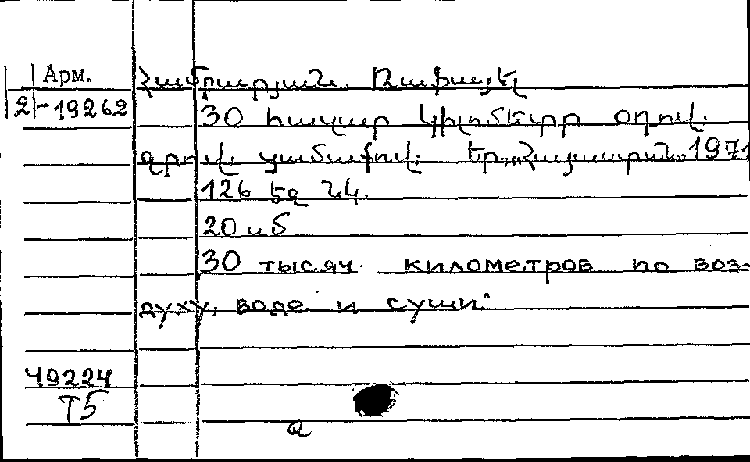 Арм.
2-19262
Համբարյան Ռաֆայել
30 հազար կիլոմետր օդով,
ջրով, ցամաքով. Եր., Հայաստան, 1971
126 էջ նկ.
20 և 5
30 тысяч километров по воз-
духу, воде и суши.
49224
T5
a